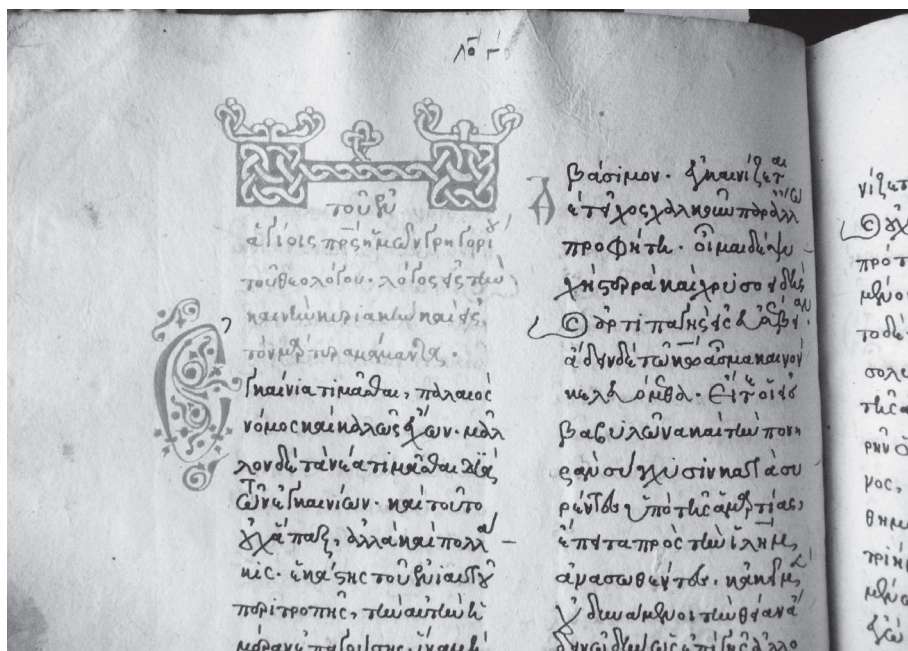 λο γ
τοῦ ἐν
ἁγίοις πρς ἡμῶν γρηγορίου
τοῦ θεολόγου. λόγος εἰς τὴν
καινὴν κυριακὴν καὶ εἰς
τὸν μάρτυρα μάμαντα.
Ἐγκαίνια τιμᾶσθαι, παλαιὸς
νόμος καὶ καλῶς ἔχων. μᾶλ
λον δὲ τὰ νέα τιμᾶσθαι διὰ
τῶν ἐγκαινίων. καὶ τοῦτο
οὐχ ἅπαξ, ἀλλὰ καὶ πολλά
κις. ἑκάστης τοῦ ἐνιαυτοῦ
περιτροπῆς, τὴν αὐτὴν ἡ
μέραν ἐπαγούσης. ἵνα μὴ
βάσιμον. ἐγκαινίζεται
τεῖχος χαλκοῦν παρ' ἄλλῳ
προφήτη. οἶμαι δὲ ψυ
χὴ στερρὰ καὶ χρυσοειδὴς
καὶ ἄρτι παγεῖσα εἰς εὐσέβειαν.
ἄδειν δὲ τῶ κω ἄσμα καινὸν
κελευόμεθα. εἴτε οἱ εἰς
βαβυλῶνα καὶ τὴν πονη
ρὰν σύγχυσιν κατασυ
ρέντες ὑπὸ τῆς ἁμαρτίας,
ἔπειτα πρὸς τὴν ἱλημ,
ἀνασωθέντες. κἀκεῖ μὲν
οὐ δυνάμενοι τὴν θείαν ἄ
δειν ὠδὴν ὡς ἐπὶ γῆς ἀλλο